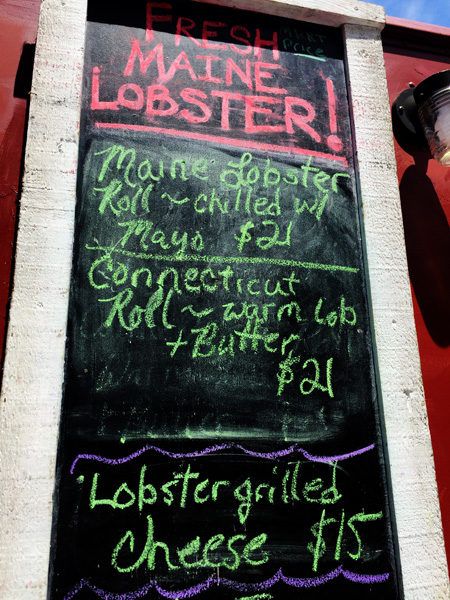 FRESH
MAINE
LOBSTER!
Price
Maine Lobster
Roll ~ chilled w/
Mayo $21
Connecticut
Roll ~ warm lob
+ Butter
$21
Lobster grilled
cheese $15